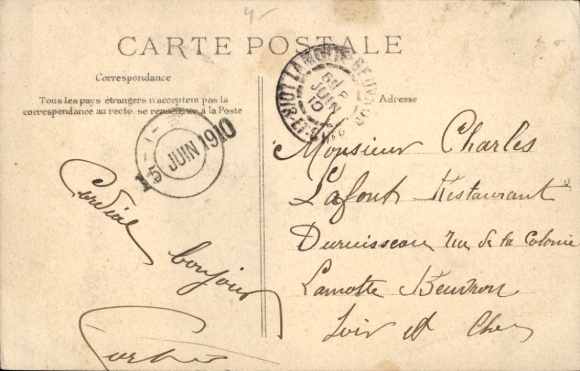 4-
CARTE POSTALE
Correspondance
Tous les pays étrangers n'acceptent pas la
correspondance au recto, se renseigner à la Poste
Adresse
JUIN 1910
LAMOTTE-BEUVRON
JUIN
10
Cordial
bonjour
Monsieur Charles
Lafont Restaurant
Duruisseau rue de la Colonie
Lamotte Beuvron
Loir et Cher